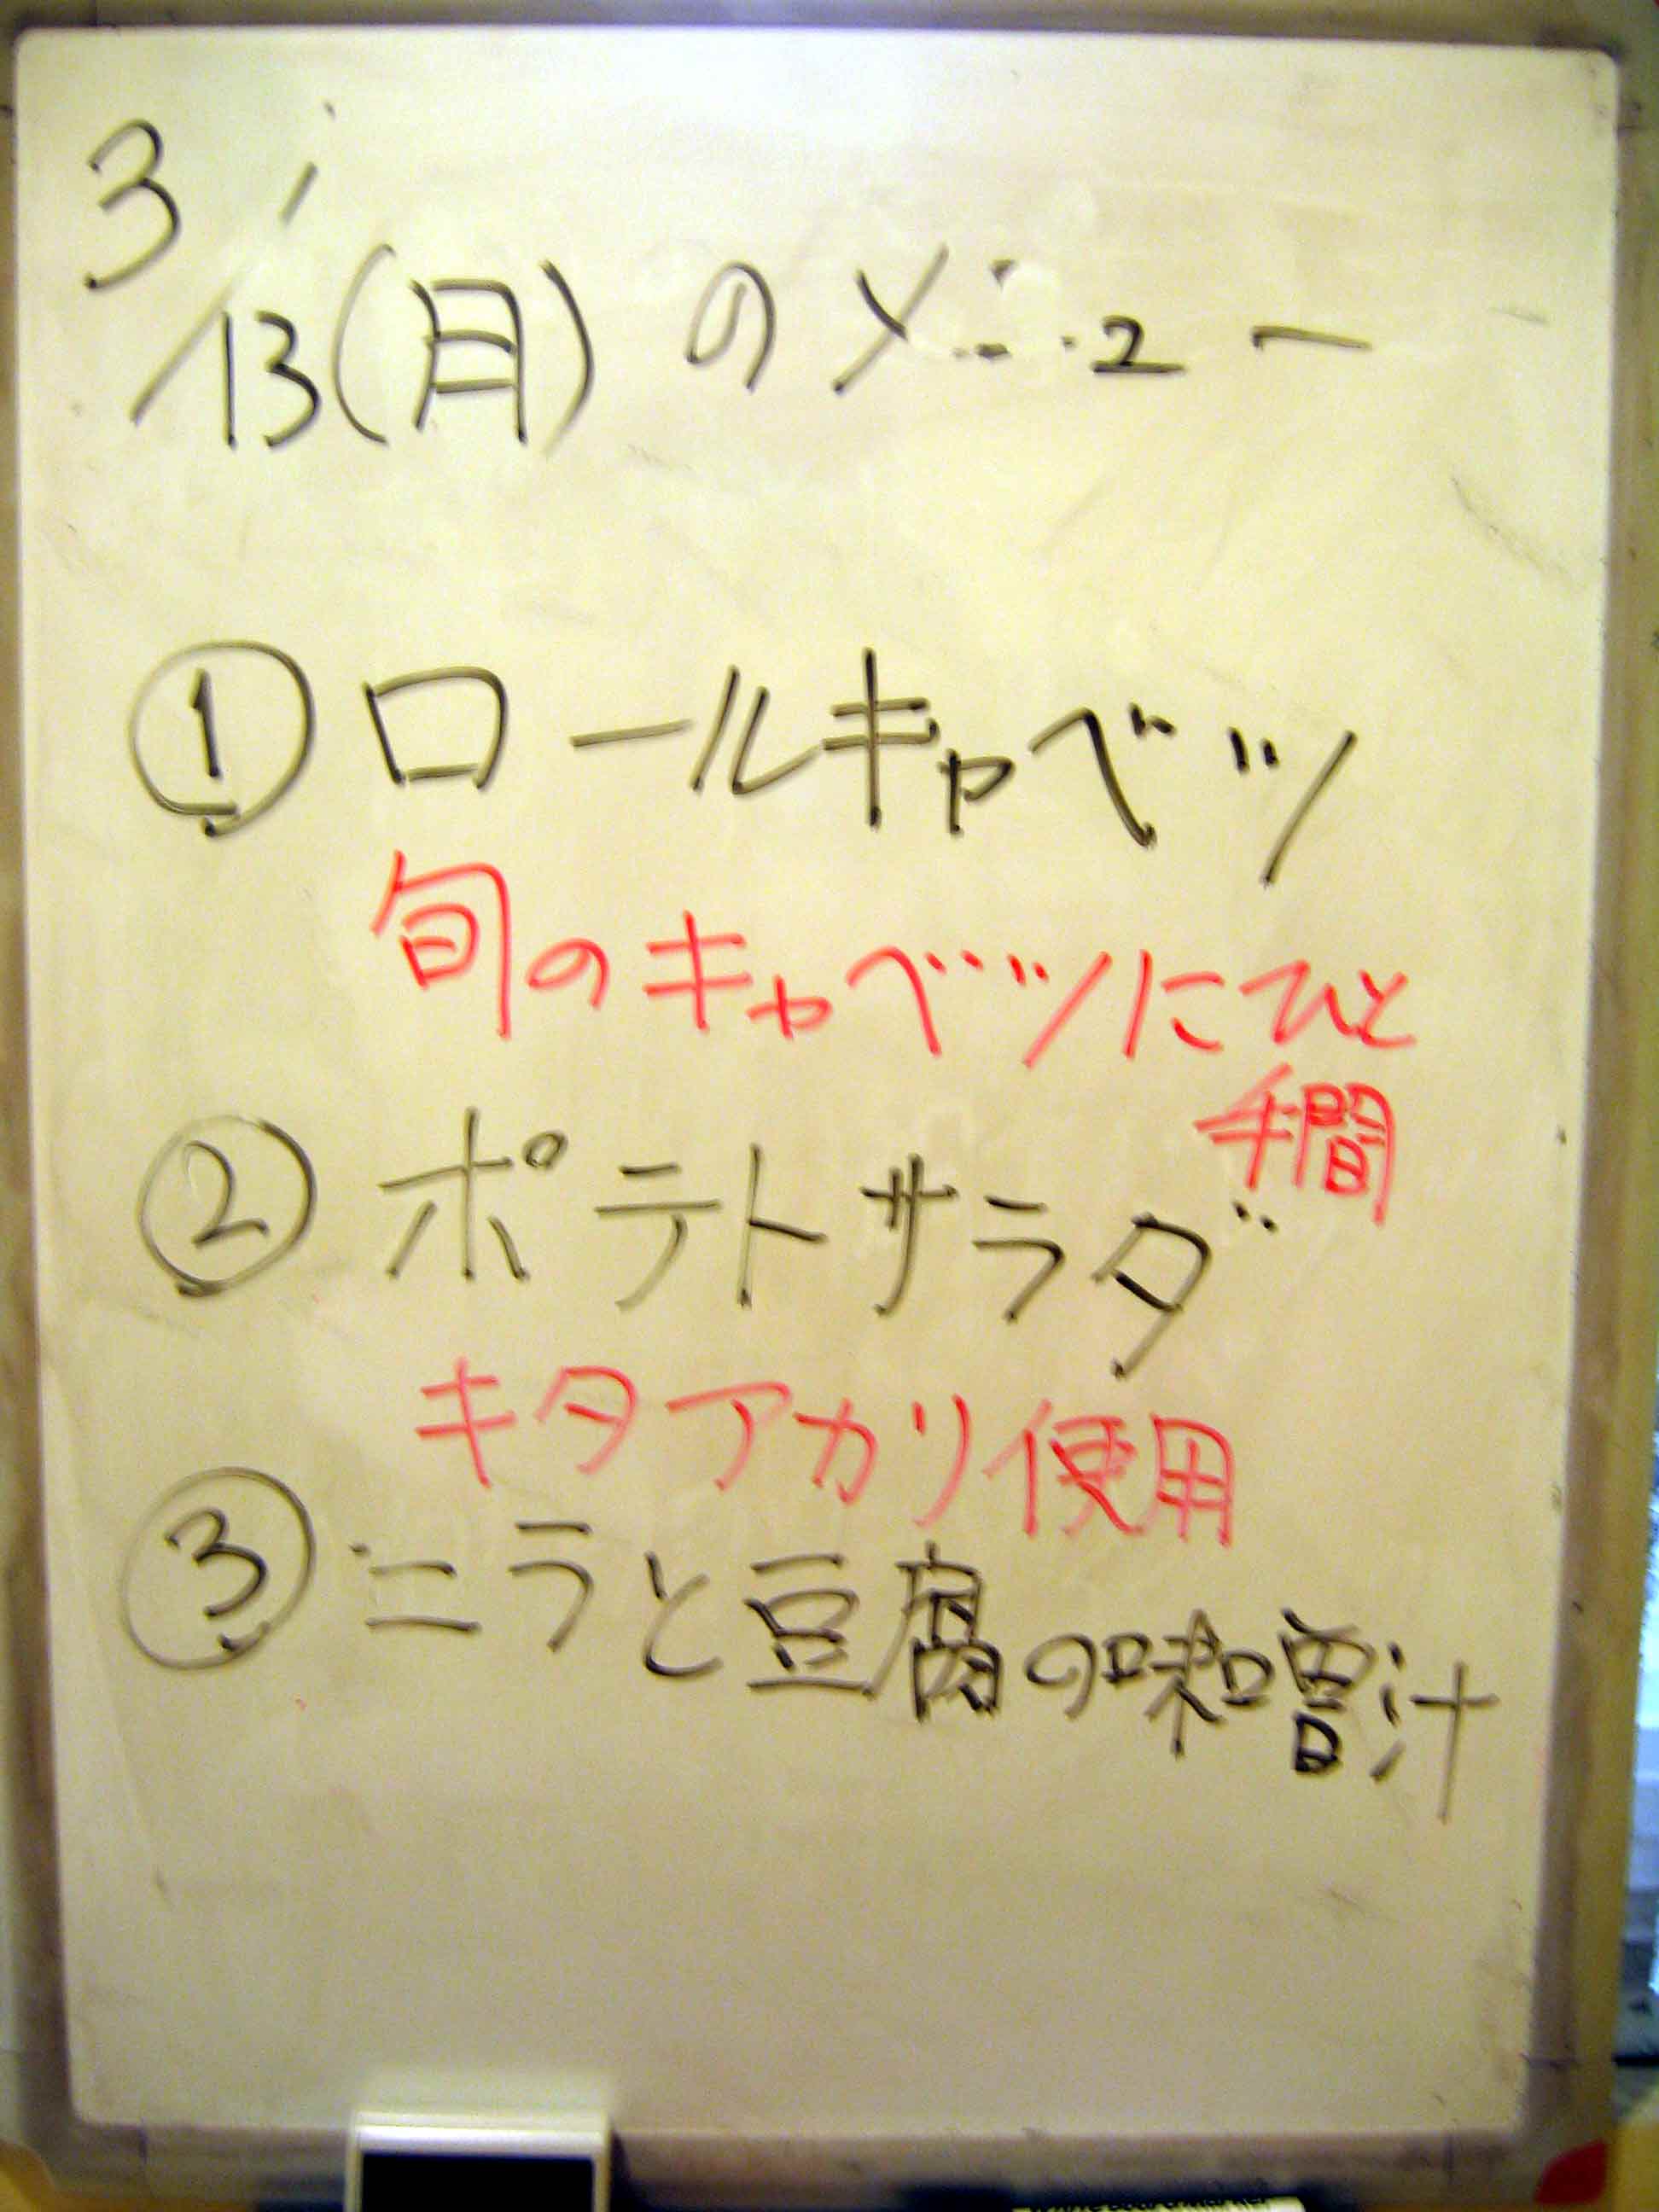 3/13(月)のメニュー
①ロールキャベツ
旬のキャベツにひと
手間
②ポテトサラダ
キタアカリ使用
③ニラと豆腐の味噌汁